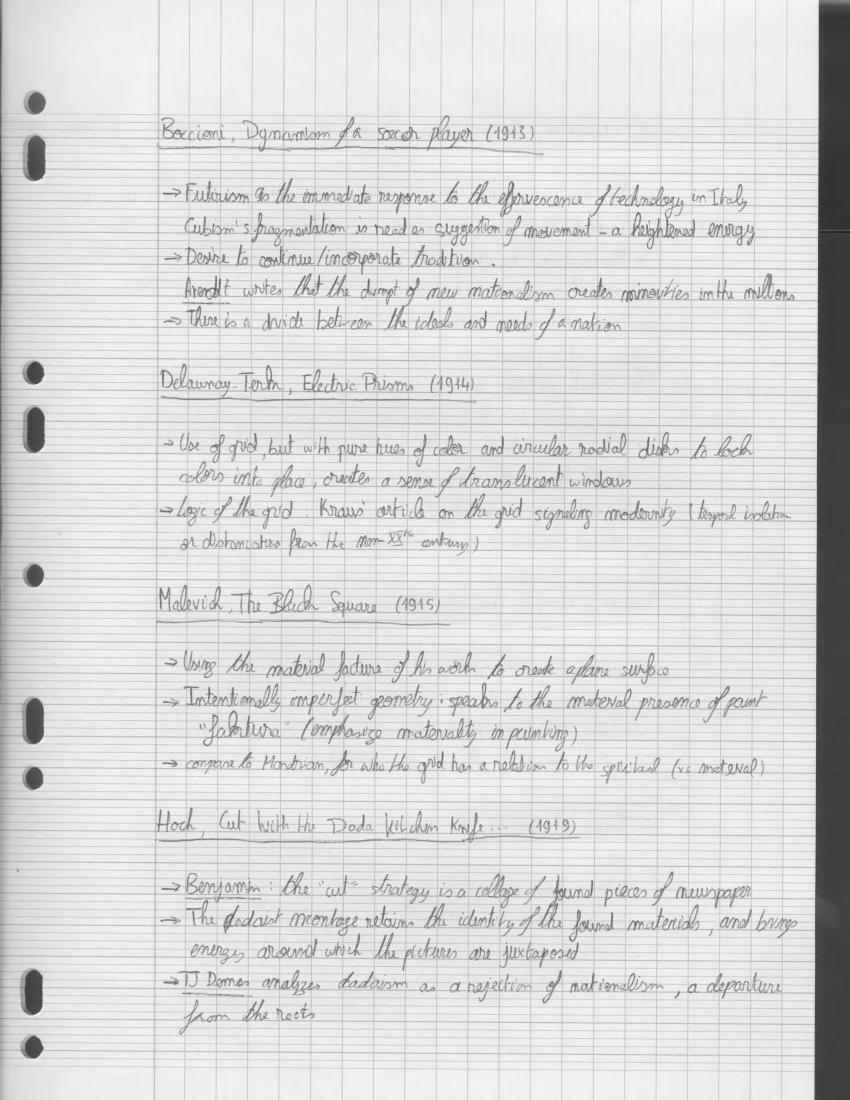 Boccioni, Dynamism of a soccer player (1913)
→ Futurism as the immediate response to the effervescence of technology in Italy
Cubism's fragmentation is read as suggestion of movement - a heightened energy
→ Desire to continue/incorporate tradition.
Arendt writes that the attempt of new nationalism creates minorities in the millions
→ There is a divide between the ideals and needs of a nation
Delaunay-Terk, Electric Prisms (1914)
→ Use of grid, but with pure hues of color and circular radial disks to lock
colors into place, creates a sense of translucent windows
→ Logic of the grid: Kraus' article on the grid signaling modernity (temporal isolation
or distanciation from the non-XXth century)
Malevich, The Black Square (1915)
→ Using the material facture of his work to create a plane surface
→ Intentionally imperfect geometry: speaks to the material presence of paint
"faktura" (emphasize materiality in painting)
→ compare to Mondrian, for who the grid has a relation to the spiritual (vs material)
Hoch, Cut With the Dada Kitchen Knife... (1919)
→ Benjamin: the "cut" strategy is a collage of found pieces of newspaper
→ The dadaist montage retains the identity of the found materials, and brings
energy around which the pictures are juxtaposed
→ TJ Demos analyzes dadaism as a rejection of nationalism, a departure
from the roots